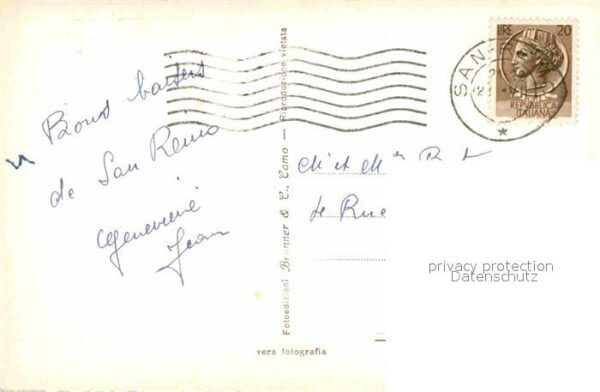 Bons baisers
de San Remo
Geneviève
Jean
Fotoedizioni Brunner & C., Como — Riproduzione vietata
vera fotografia
LIRE 20
REPVBBLICA
ITALIANA
SAN
M et M
privacy protection
Datenschutz